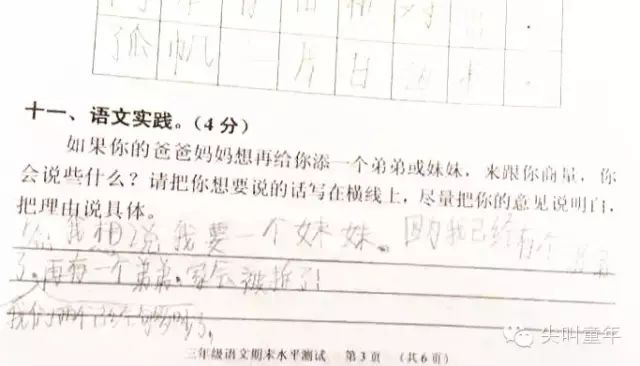 十一、语文实践。(4分)
如果你的爸爸妈妈想再给你添一个弟弟或妹妹，来跟你商量，你
会说些什么？请把你想要说的话写在横线上，尽量把你的意见说明白，
把理由说具体。
我想说我要一个妹妹。因为我已经有个
了。再有一个弟弟。家会被拆了！
我们两个已经够
三年级语文期末水平测试 第3页 (共6页)
尖叫童年